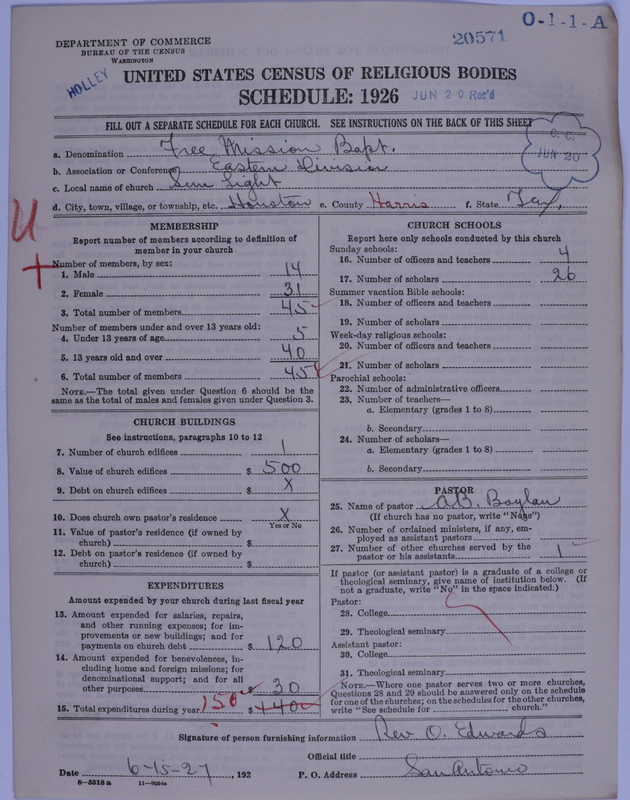 O-1-1-A
20571
DEPARTMENT OF COMMERCE
BUREAU OF THE CENSUS
WASHINGTON
HOLLEY
UNITED STATES CENSUS OF RELIGIOUS BODIES
SCHEDULE: 1926
JUN 20 Rec'd
FILL OUT A SEPARATE SCHEDULE FOR EACH CHURCH. SEE INSTRUCTIONS ON THE BACK OF THIS SHEET
C. C.
JUN 20
a. Denomination Free Mission Bapt.
b. Association or Conference Eastern Division
c. Local name of church Sun Light
d. City, town, village, or township, etc. Houston e. County Harris f. State Tex.
MEMBERSHIP
Report number of members according to definition of
member in your church
Number of members, by sex:
1. Male 14
2. Female 31
3. Total number of members 45
Number of members under and over 13 years old:
4. Under 13 years of age 5
5. 13 years old and over 40
6. Total number of members 45
NOTE.—The total given under Question 6 should be the
same as the total of males and females given under Question 3.
CHURCH BUILDINGS
See instructions, paragraphs 10 to 12
7. Number of church edifices 1
8. Value of church edifices $ 500
9. Debt on church edifices $ X
10. Does church own pastor's residence X
Yes or No
11. Value of pastor's residence (if owned by
church) $
12. Debt on pastor's residence (if owned by
church) $
EXPENDITURES
Amount expended by your church during last fiscal year
13. Amount expended for salaries, repairs,
and other running expenses; for im-
provements or new buildings; and for
payments on church debt $ 120
14. Amount expended for benevolences, in-
cluding home and foreign missions; for
denominational support; and for all
other purposes $ 30
15. Total expenditures during year 150 $ 140
CHURCH SCHOOLS
Report here only schools conducted by this church
Sunday schools:
16. Number of officers and teachers 4
17. Number of scholars 26
Summer vacation Bible schools:
18. Number of officers and teachers
19. Number of scholars
Week-day religious schools:
20. Number of officers and teachers
21. Number of scholars
Parochial schools:
22. Number of administrative officers
23. Number of teachers—
a. Elementary (grades 1 to 8)
b. Secondary
24. Number of scholars—
a. Elementary (grades 1 to 8)
b. Secondary
PASTOR
25. Name of pastor A.B. Boylan
(If church has no pastor, write "None")
26. Number of ordained ministers, if any, em-
ployed as assistant pastors
27. Number of other churches served by the
pastor or his assistants 1
If pastor (or assistant pastor) is a graduate of a college or
theological seminary, give name of institution below. (If
not a graduate, write "No" in the space indicated.)
Pastor:
28. College
29. Theological seminary
Assistant pastor:
30. College
31. Theological seminary
NOTE.—Where one pastor serves two or more churches,
Questions 28 and 29 should be answered only on the schedule
for one of the churches; on the schedules for the other churches,
write "See schedule for church."
Signature of person furnishing information Rev O. Edwards
Official title
Date 6-15-27, 192 P. O. Address San Antonio
8—5518 a 11—9054a